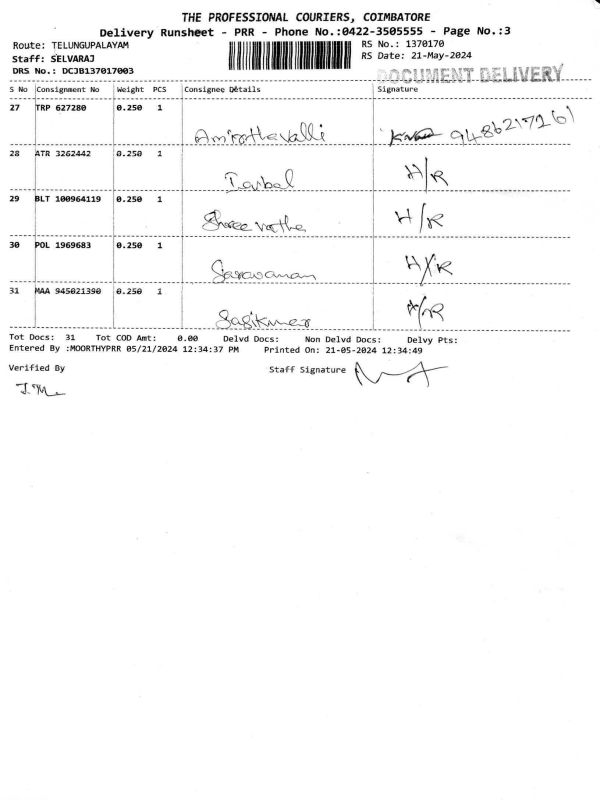 THE PROFESSIONAL COURIERS, COIMBATORE
Delivery Runsheet - PRR - Phone No.:0422-3505555 - Page No.:3
Route: TELUNGUPALAYAM RS No.: 1370170
Staff: SELVARAJ RS Date: 21-May-2024
DRS No.: DCJB137017003 DOCUMENT DELIVERY
S No Consignment No Weight PCS Consignee Details Signature
27 TRP 627280 0.250 1
Amirthavalli 9486217161
28 ATR 3262442 0.250 1
Iqbal H/R
29 BLT 100964119 0.250 1
Shree H/R
30 POL 1969683 0.250 1
Saravanan H/R
31 MAA 945021390 0.250 1
Sasikumar H/R
Tot Docs: 31 Tot COD Amt: 0.00 Delvd Docs: Non Delvd Docs: Delvy Pts:
Entered By :MOORTHYPRR 05/21/2024 12:34:37 PM Printed On: 21-05-2024 12:34:49
Verified By Staff Signature